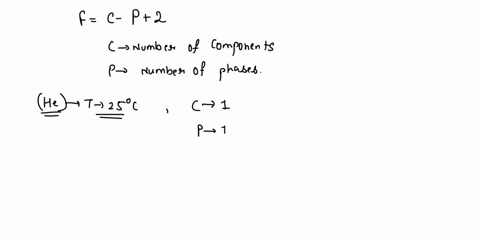 F = C - P + 2
C → Number of Components
P → Number of phases.
(He) → T → 25°C , C → 1
P → 1